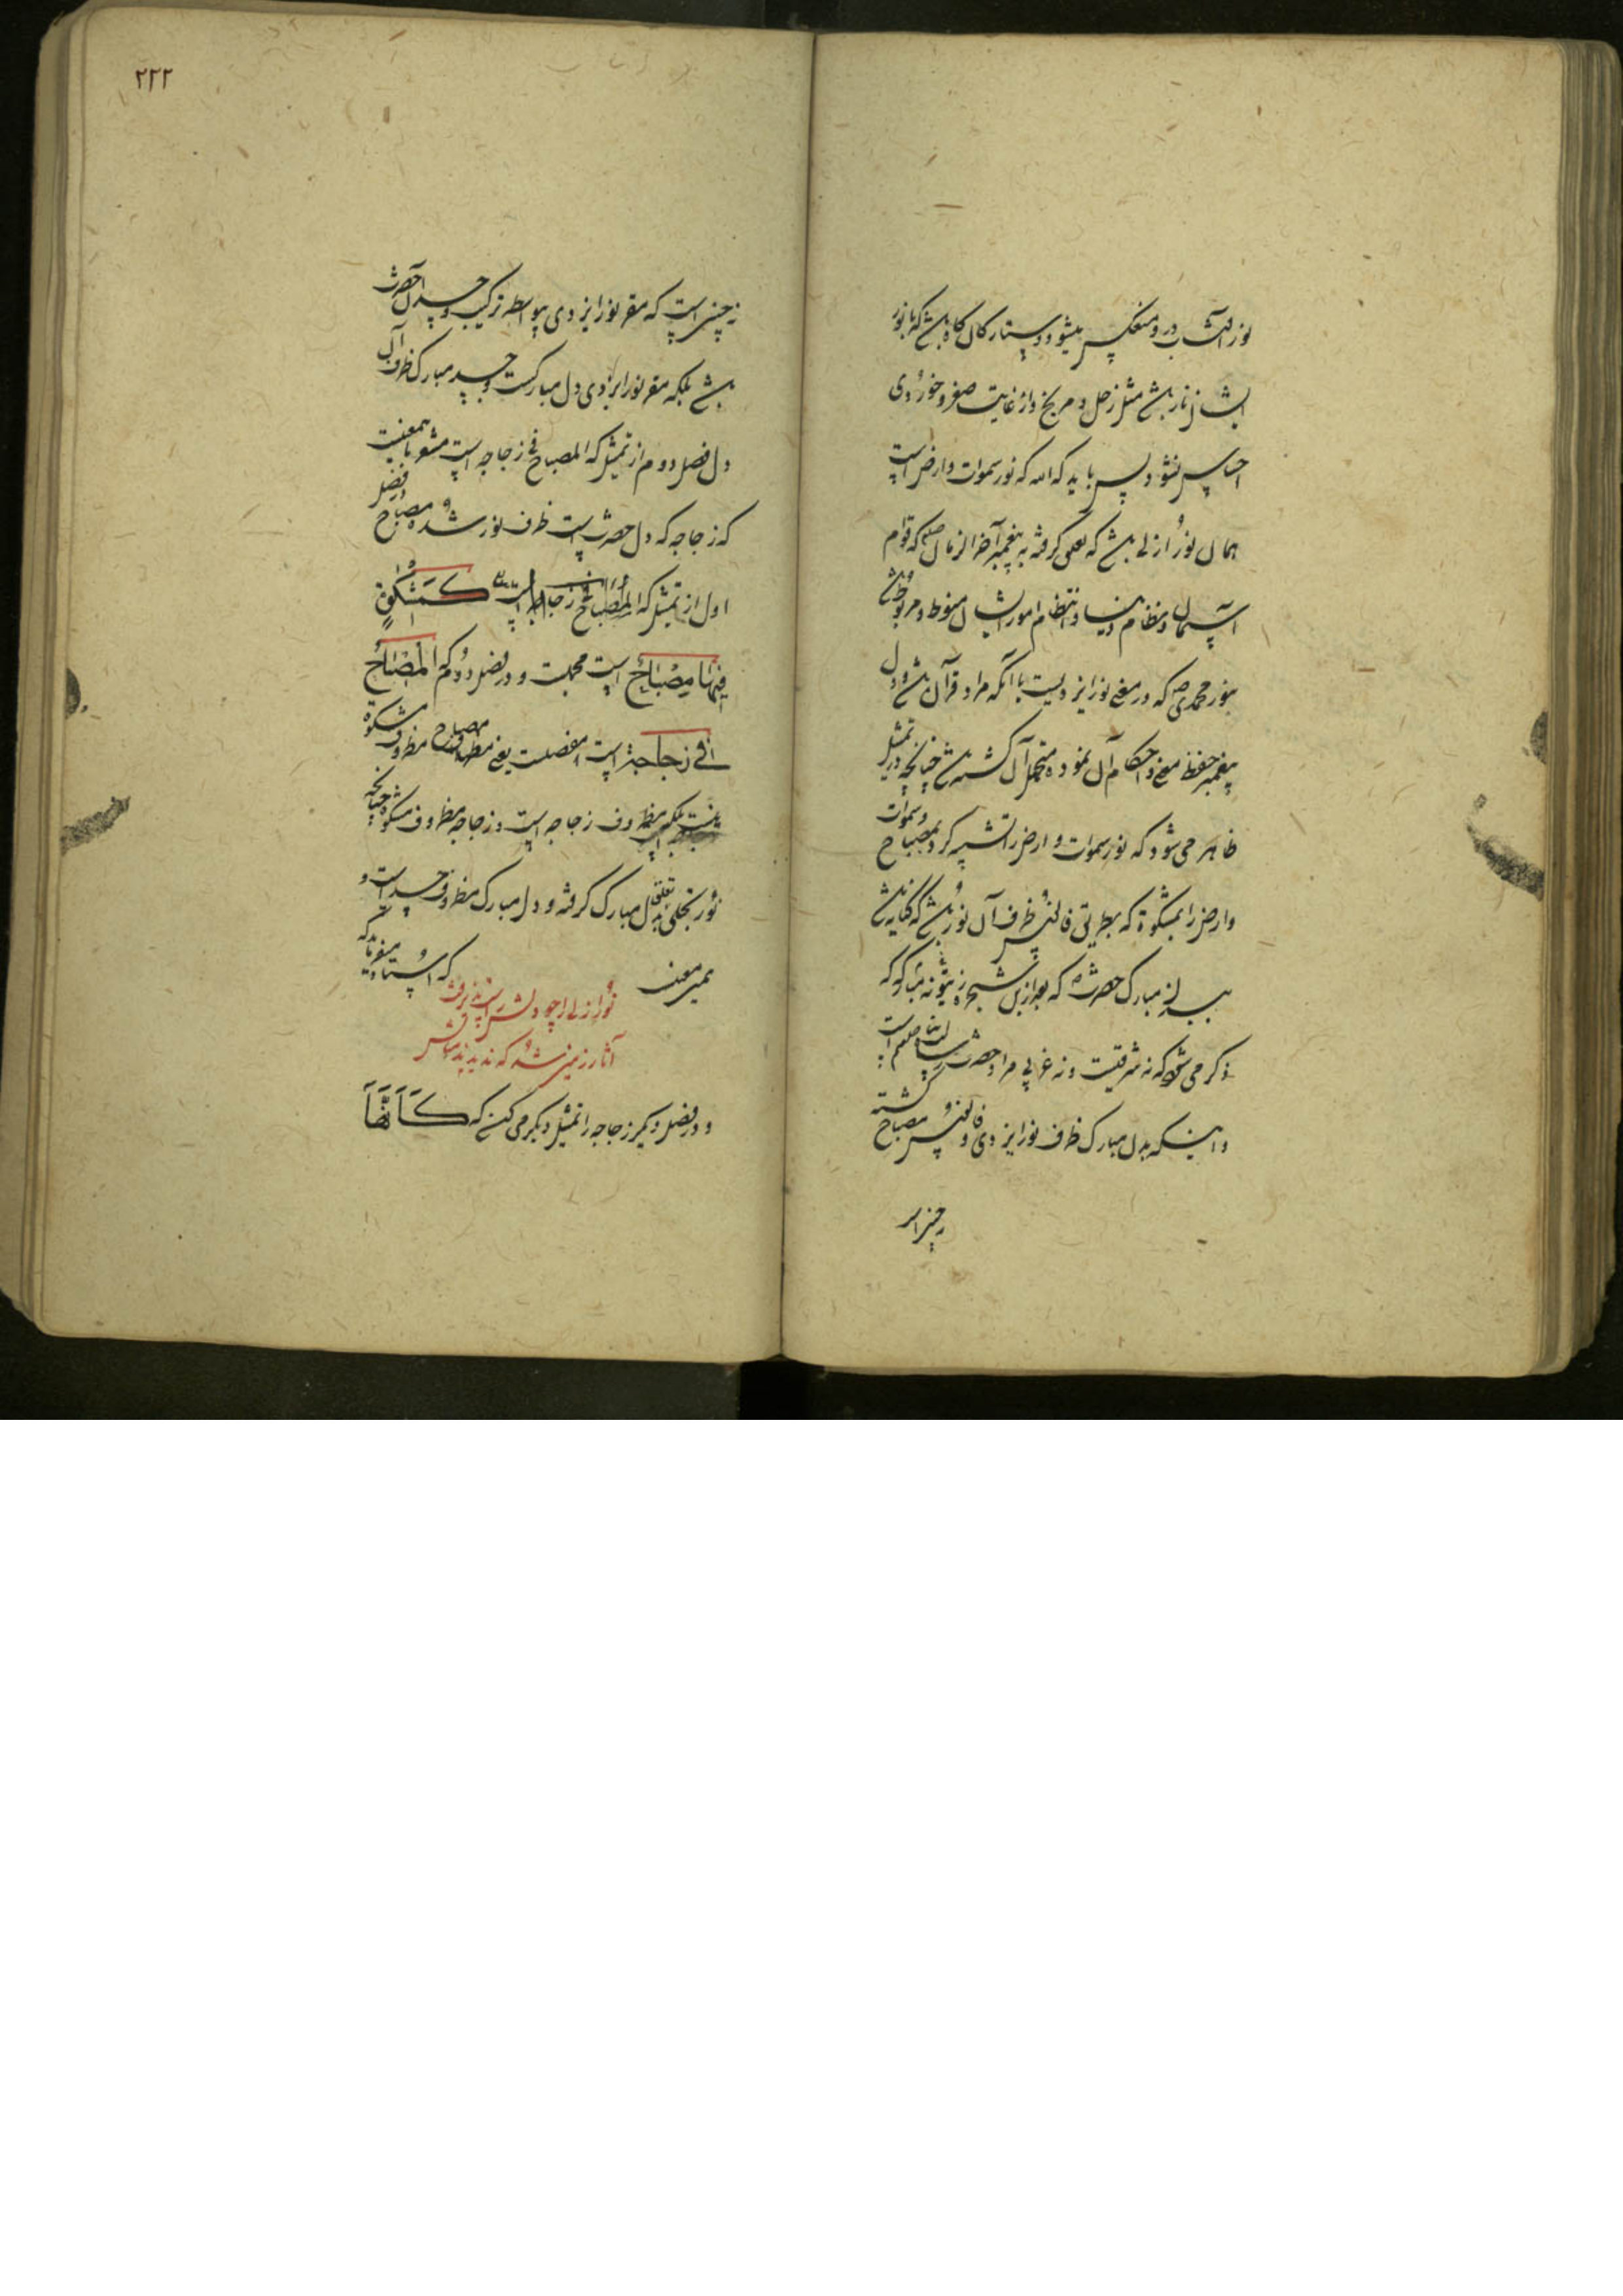 نور آفتاب درو منعکس میشود و ستارکان کاه باشد که با نور
ایشان نار باشد مثل زحل و مریخ و از غایت صغر و خوردی
احساس نشود پس باید که الله که نور سموات و ارض است
همان نور ازلی باشد که تعلق کرفته به پیغمبر آخر الزمان صلعم که قوام
آسمان و نظام دنیا و انتظام امور ایشان منوط و مربوط باشد
بنور محمدی ص که در معنی نور ایزدیست با آنکه مراد قرآن باشد و دل
پیغمبر حفظ معنی و احکام آن نموده متحمل آن کشته باشد چنانچه در تمثیل
ظاهر می شود که نور سموات و ارض را تشبیه کرد بمصباح و سموات
و ارض را بمشکوة که بطریق فانوس ظرف آن نور باشد که کنایه باشد
مبارک حضرت که بعد ازین شجره زیتونه مبارکه که
ذکر می شود که نه شرقیست و نه غربی مراد حضرت رسالت پناه صلعم است
و اینکه بدن مبارک ظرف نور ایزدی و فانوس مصباح کشته
نه چنین است
۲۲۲
نه چنین است که مقر نور ایزدی بیواسطه ترکیب و جسد آن حضرت
باشد بلکه مقر نور ایزدی دل مبارکست و جسد مبارک ظرف آن
دل فصل دوم از تمثیل که المصباح فی زجاجه است مشعر باین معنیست
که زجاجه که دل حضرت است ظرف نور شده و فصل مصباح
اول از تمثیل که کَمِشْکوٰةٍ
فِیهَا مِصْبَاحٌ است مجملست و در فصل دوم که الْمِصْبَاحُ
فِی زُجَاجَةٍ است مفصلست یعنی مصباح مظروف مشکوة
نیست بلکه مظروف زجاجه است و زجاجه مظروف مشکوة چنانچه
نور تجلی تعلق بدل مبارک کرفته و دل مبارک مظروف جسد است و
همین معنیست که استاد میفرماید که
نور ازلی را چو دلش راست پذیرفت
آثار زمین شد که ندیدند مثالش
و در فصل دیکر زجاجه را تمثیل دیکر می کند که کَأَنَّهَا